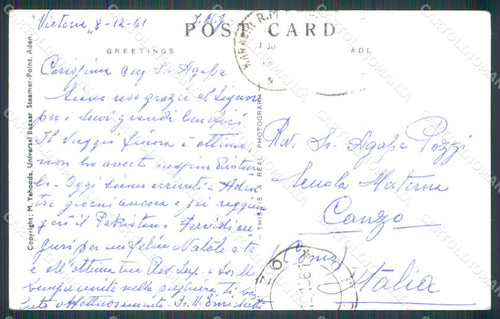 "Victoria" 8-12-61
J.M.J.
POST CARD
GREETINGS
Carissima Sr. Agape
Siano rese grazie al Signore
per i suoi grandi benefici
Il viaggio finora è ottimo,
non ho avuto nessun disturbo
Oggi siamo arrivate a Aden
tre giorni ancora e poi raggiun
gerò il Pakistan. Fervidi au
guri per un felice Natale a te
e all'ottima tua Rev. Sup.
nella preghiera ti
affettuosamente Sr. M.
Copyright; M. Yahooda, Universal Bazaar Steamer-Point, Aden.
THIS IS A REAL PHOTOGRAPH
KARACHI
Rev. Sr. Agape Pozzi
Scuola Materna
Canzo
(Como)
Italia
CARTOLINOMANIA